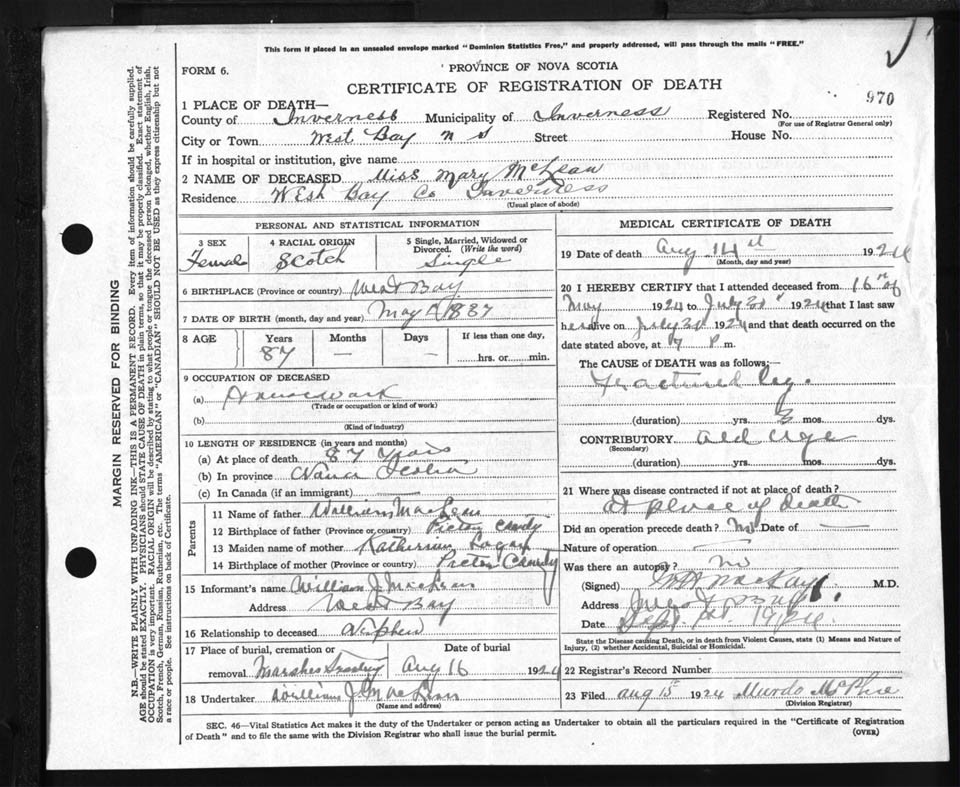 This form if placed in an unsealed envelope marked "Dominion Statistics Free," and properly addressed, will pass through the mails "FREE."
FORM 6.
PROVINCE OF NOVA SCOTIA
CERTIFICATE OF REGISTRATION OF DEATH
970
1 PLACE OF DEATH—
County of Inverness Municipality of Inverness Registered No.
(For use of Registrar General only)
City or Town West Bay N S Street House No.
If in hospital or institution, give name
2 NAME OF DECEASED Miss Mary McLean
Residence West Bay Co Inverness
(Usual place of abode)
PERSONAL AND STATISTICAL INFORMATION
3 SEX Female
4 RACIAL ORIGIN Scotch
5 Single, Married, Widowed or Divorced. (Write the word) Single
6 BIRTHPLACE (Province or country) West Bay
7 DATE OF BIRTH (month, day and year) May 1837
8 AGE Years 87 Months — Days — If less than one day, ......hrs. or ......min.
9 OCCUPATION OF DECEASED
(a) Housework
(Trade or occupation or kind of work)
(b)
(Kind of industry)
10 LENGTH OF RESIDENCE (in years and months)
(a) At place of death 87 years
(b) In province Nova Scotia
(c) In Canada (if an immigrant) —
Parents
11 Name of father William MacLean
12 Birthplace of father (Province or country) Pictou County
13 Maiden name of mother Katherine Logan
14 Birthplace of mother (Province or country) Pictou County
15 Informant's name William J. MacLean
Address West Bay
16 Relationship to deceased Nephew
17 Place of burial, cremation or removal Date of burial
Aug 16 1924
18 Undertaker William J. MacLean
(Name and address)
MEDICAL CERTIFICATE OF DEATH
19 Date of death Aug 14 1924
(Month, day and year)
20 I HEREBY CERTIFY that I attended deceased from 16th of
May 1924 to July 1924 that I last saw
her alive on July 1924 and that death occurred on the
date stated above, at 7 P m.
The CAUSE OF DEATH was as follows:—
Fractured leg.
(duration) yrs. 3 mos. dys.
CONTRIBUTORY Old Age
(Secondary)
(duration) yrs. mos. dys.
21 Where was disease contracted if not at place of death?
at place of death
Did an operation precede death? No Date of —
Nature of operation —
Was there an autopsy? no
(Signed) MacKay M.D.
Address
Date Sept 1924
State the Disease causing Death, or in death from Violent Causes, state (1) Means and Nature of Injury, (2) whether Accidental, Suicidal or Homicidal.
22 Registrar's Record Number
23 Filed Aug 15th 1924 Murdo McPhie
(Division Registrar)
SEC. 46—Vital Statistics Act makes it the duty of the Undertaker or person acting as Undertaker to obtain all the particulars required in the "Certificate of Registration
of Death" and to file the same with the Division Registrar who shall issue the burial permit.
(OVER)
MARGIN RESERVED FOR BINDING
N.B.—WRITE PLAINLY WITH UNFADING INK—THIS IS A PERMANENT RECORD. Every item of information should be carefully supplied.
AGE should be stated EXACTLY. PHYSICIANS should STATE CAUSE OF DEATH in plain terms, so that it may be properly classified. Exact statement of
OCCUPATION is very important. RACIAL ORIGIN will be described by stating to what people or tongue the deceased person belonged, whether English, Irish,
Scotch, French, German, Russian, Ruthenian, etc. The terms "AMERICAN" or "CANADIAN" SHOULD NOT BE USED as they express citizenship but not
a race or people. See instructions on back of Certificate.